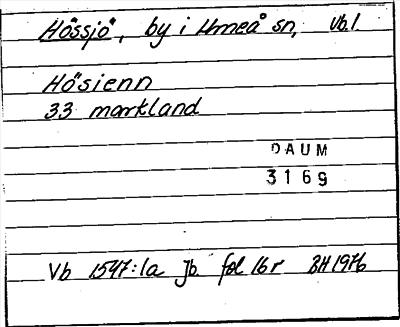 Hössjö, by i Umeå sn, Vb.l.
Hösienn
33 markland
DAUM
3169
Vb 1547:1a Jb. fol 16r BH 1976